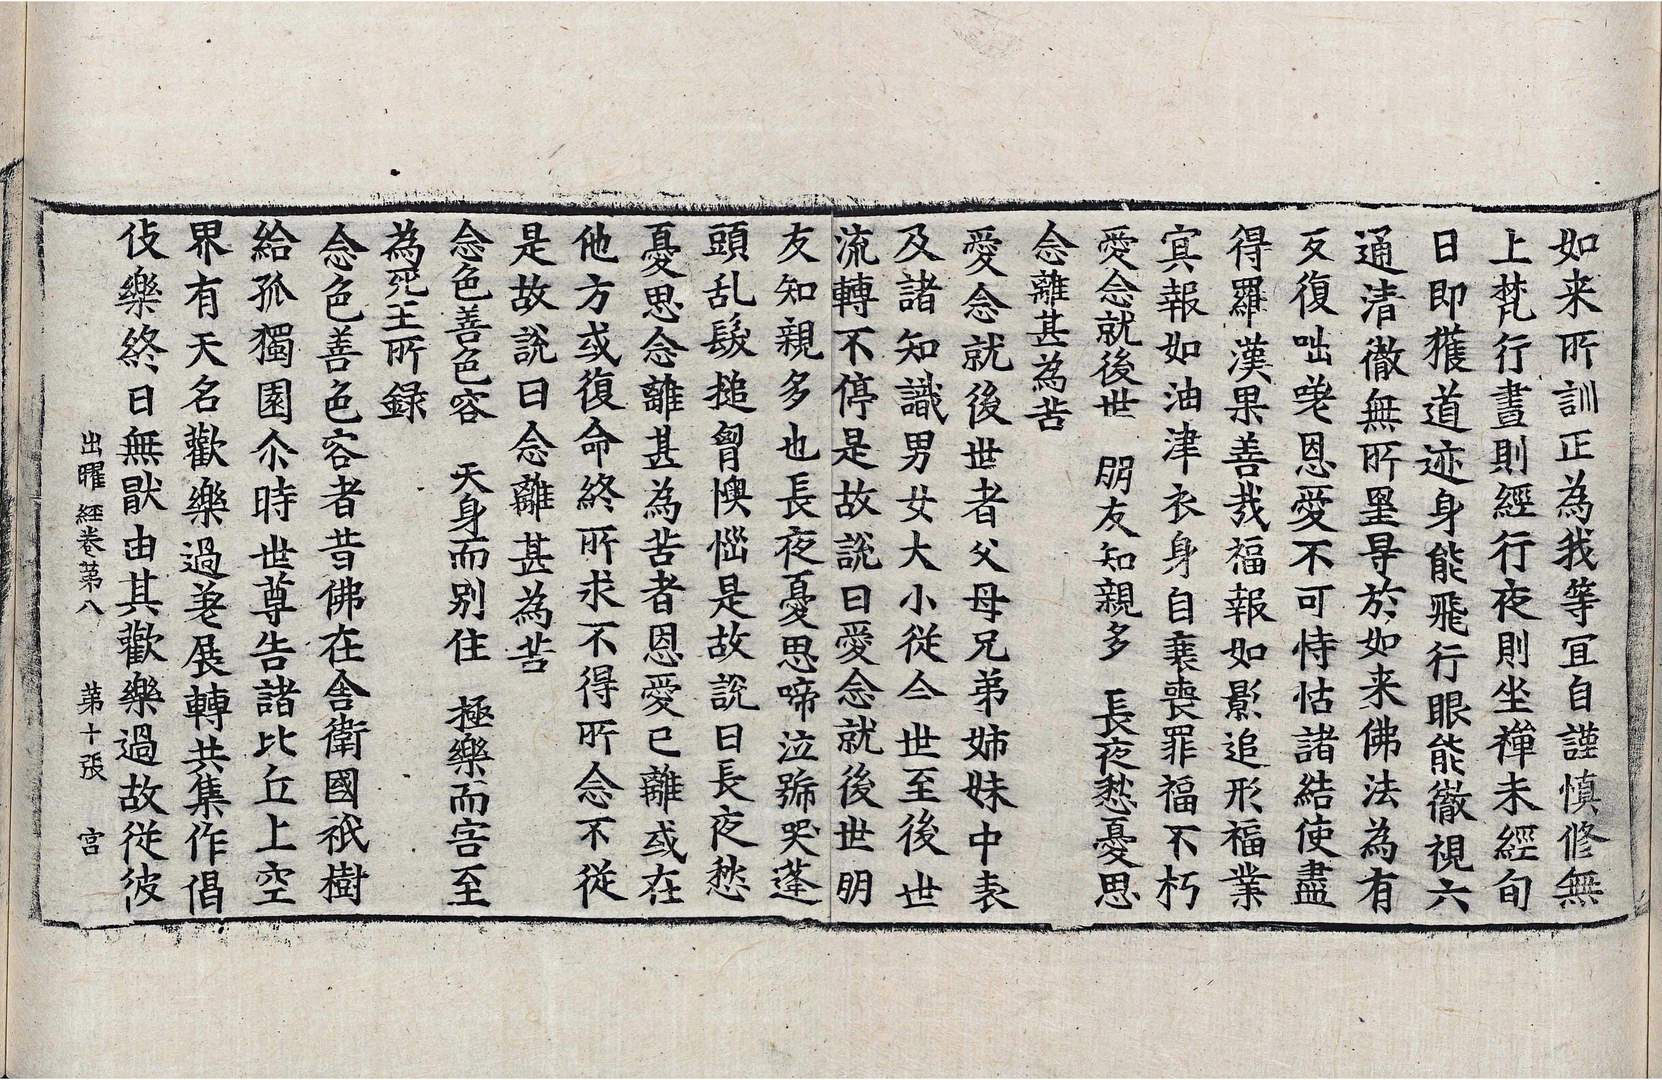 如来所訓正為我等冝自謹慎修無
上梵行晝則經行夜則坐禪未經旬
日即獲道迹身能飛行眼能徹視六
通清徹無所罣导於如来佛法為有
反復咄嗟恩愛不可恃怙諸結使盡
得羅漢果善哉福報如影追形福業
冥報如油津衣身自衰喪罪福不朽
愛念就後世　朋友知親多　長夜愁憂思
念離甚為苦
愛念就後世者父母兄弟姉妹中表
及諸知識男女大小従今世至後世
流轉不停是故說曰愛念就後世朋
友知親多也長夜憂思啼泣號哭蓬
頭乱髮搥胷懊惱是故說曰長夜愁
憂思念離甚為苦者恩愛已離或在
他方或復命終所求不得所念不従
是故說曰念離甚為苦
念色善色容　天身而別住　極樂而害至
為死王所録
念色善色容者昔佛在舎衛國祇樹
給孤獨園尒時世尊告諸比丘上空
界有天名歡樂過差展轉共集作倡
伎樂終日無猒由其歡樂過故従彼
出曜經卷第八　第十張　宮